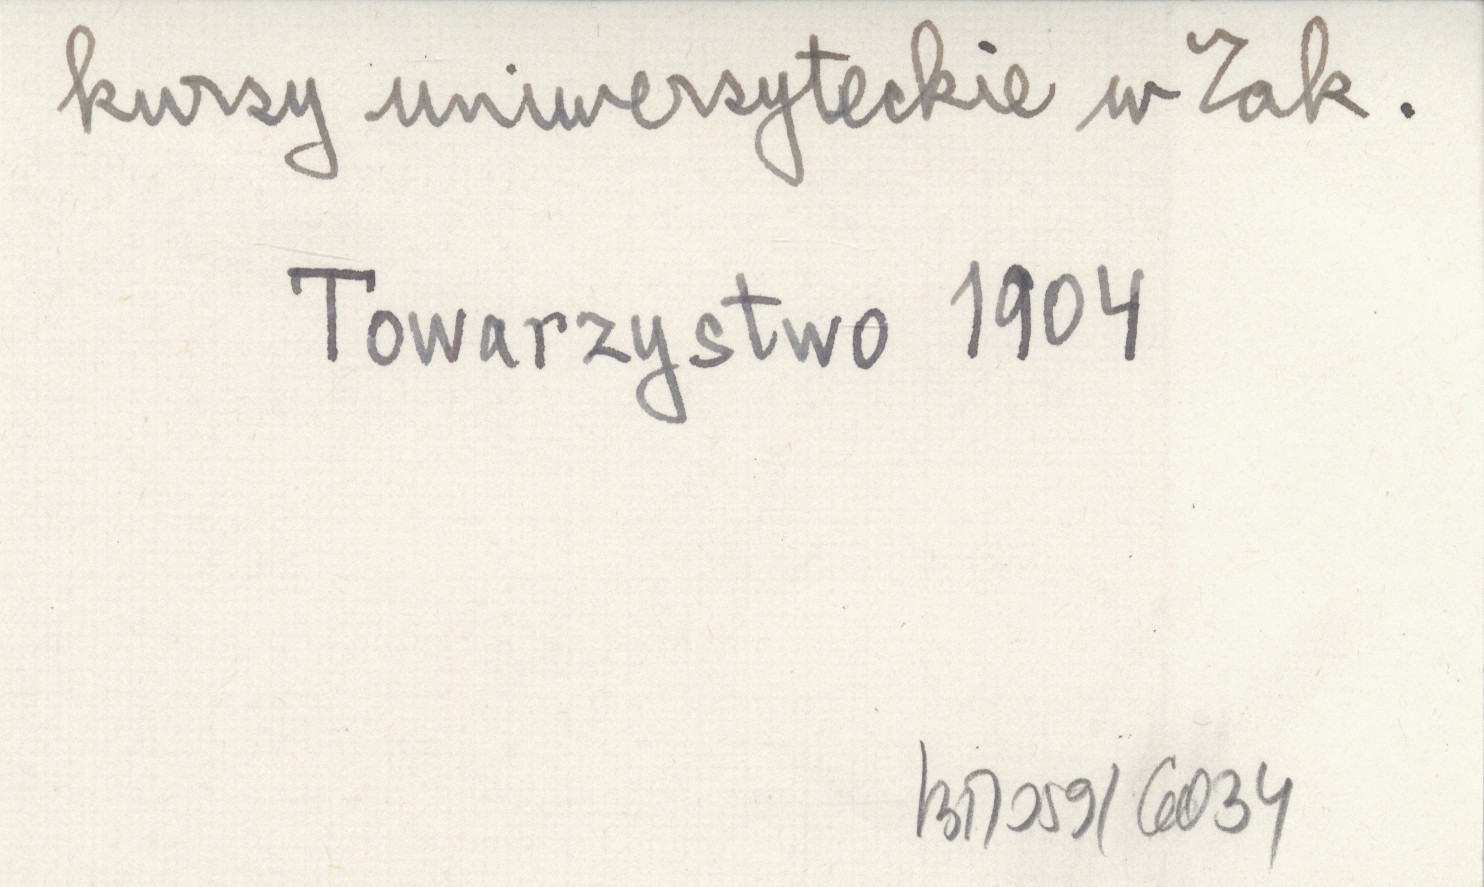 kursy uniwersyteckie w Zak.
Towarzystwo 1904
6034